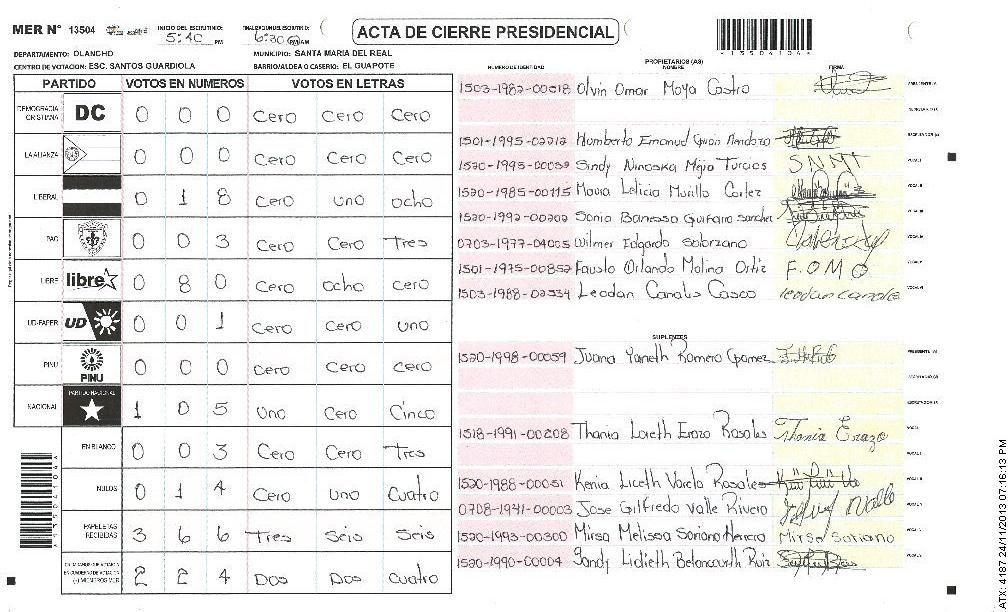 MER N° 13504
INICIO DEL ESCRUTINIO: 5:40 PM
6:30 PM AM
ACTA DE CIERRE PRESIDENCIAL
DEPARTAMENTO: OLANCHO
MUNICIPIO: SANTA MARIA DEL REAL
CENTRO DE VOTACION: ESC. SANTOS GUARDIOLA
BARRIO/ALDEA O CASERIO: EL GUAPOTE
PARTIDO VOTOS EN NUMEROS VOTOS EN LETRAS
DEMOCRACIA CRISTIANA DC 0 0 0 Cero Cero Cero
LA ALIANZA 0 0 0 Cero Cero Cero
LIBERAL 0 1 8 Cero uno ocho
PAC 0 0 3 Cero Cero Tres
LIBRE libre 0 8 0 Cero ocho Cero
UD-FAPER UD 0 0 1 Cero Cero uno
PINU PINU 0 0 0 Cero Cero cero
NACIONAL PARTIDO NACIONAL 1 0 5 Uno Cero Cinco
EN BLANCO 0 0 3 Cero Cero Tres
NULOS 0 1 4 Cero uno Cuatro
PAPELETAS RECIBIDAS 3 6 6 Tres Seis Seis
2 2 4 Dos Dos Cuatro
NUMERO DE IDENTIDAD
PROPIETARIOS (AS)
NOMBRE
FIRMA
1503-1982-00518 Olvin Omar Moya Castro
1501-1995-02212 Humberto Emanuel
1520-1995-00032 Sindy Ninoska Mejia Turcios SNMT
1520-1985-00115 Maria Leticia Murillo Cortez
1520-1992-00202 Sonia Banessa Guifarro Sanchez
0703-1977-04005 Wilmer Edgardo Solorzano
1501-1975-00852 Fausto Orlando Molina Ortiz F.O.M.O
1503-1988-02334 Leodan Canales Casco leodan canales
SUPLENTES
1520-1998-00059 Juana Yaneth Romero Gomez
1518-1991-00208 Thania Lizeth Erazo Rosales Thania Erazo
1520-1988-00051 Kenia Liceth Varela Rosales
0708-1941-00003 Jose Gilfredo Valle Rivera
1520-1993-00300 Mirsa Melissa Soriano Herrera Mirsa Soriano
1520-1990-00004 Sandy Lidieth Betancourth Ruiz
ATX: 4187 24/11/2013 07:16:13 PM